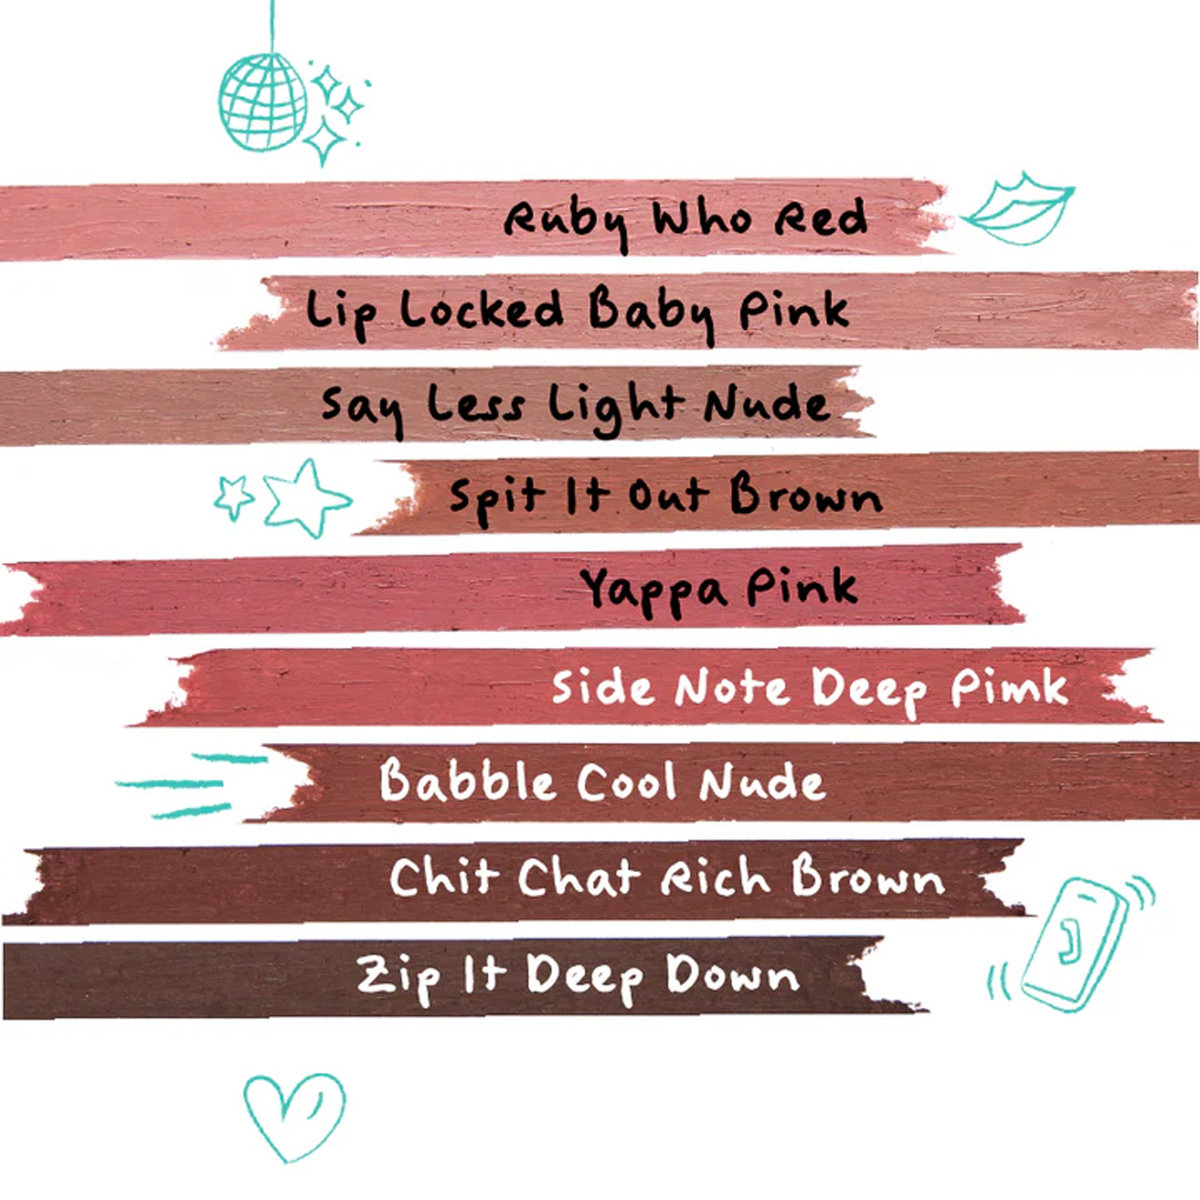 Ruby Who Red
Lip Locked Baby Pink
Say Less Light Nude
Spit It Out Brown
Yappa Pink
Side Note Deep Pimk
Babble Cool Nude
Chit Chat Rich Brown
Zip It Deep Down